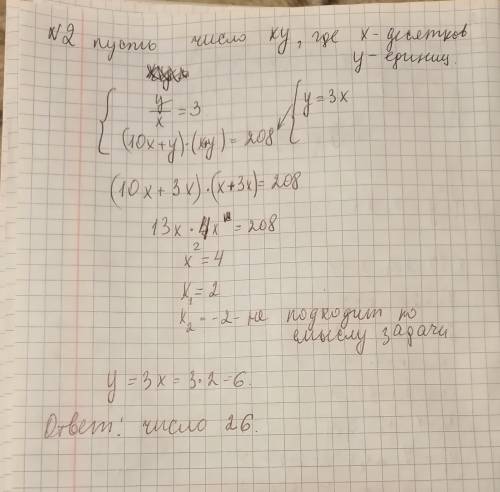 N2 пусть число xy, где x-десятков
y-единиц.
{ y/x = 3
{ y = 3x
(10x+y)·(x+y) = 208
(10x + 3x)·(x+3x) = 208
13x · 4x = 208
x² = 4
x₁ = 2
x₂ = -2 - не подходит по
смыслу задачи
y = 3x = 3·2 = 6.
Ответ: число 26.